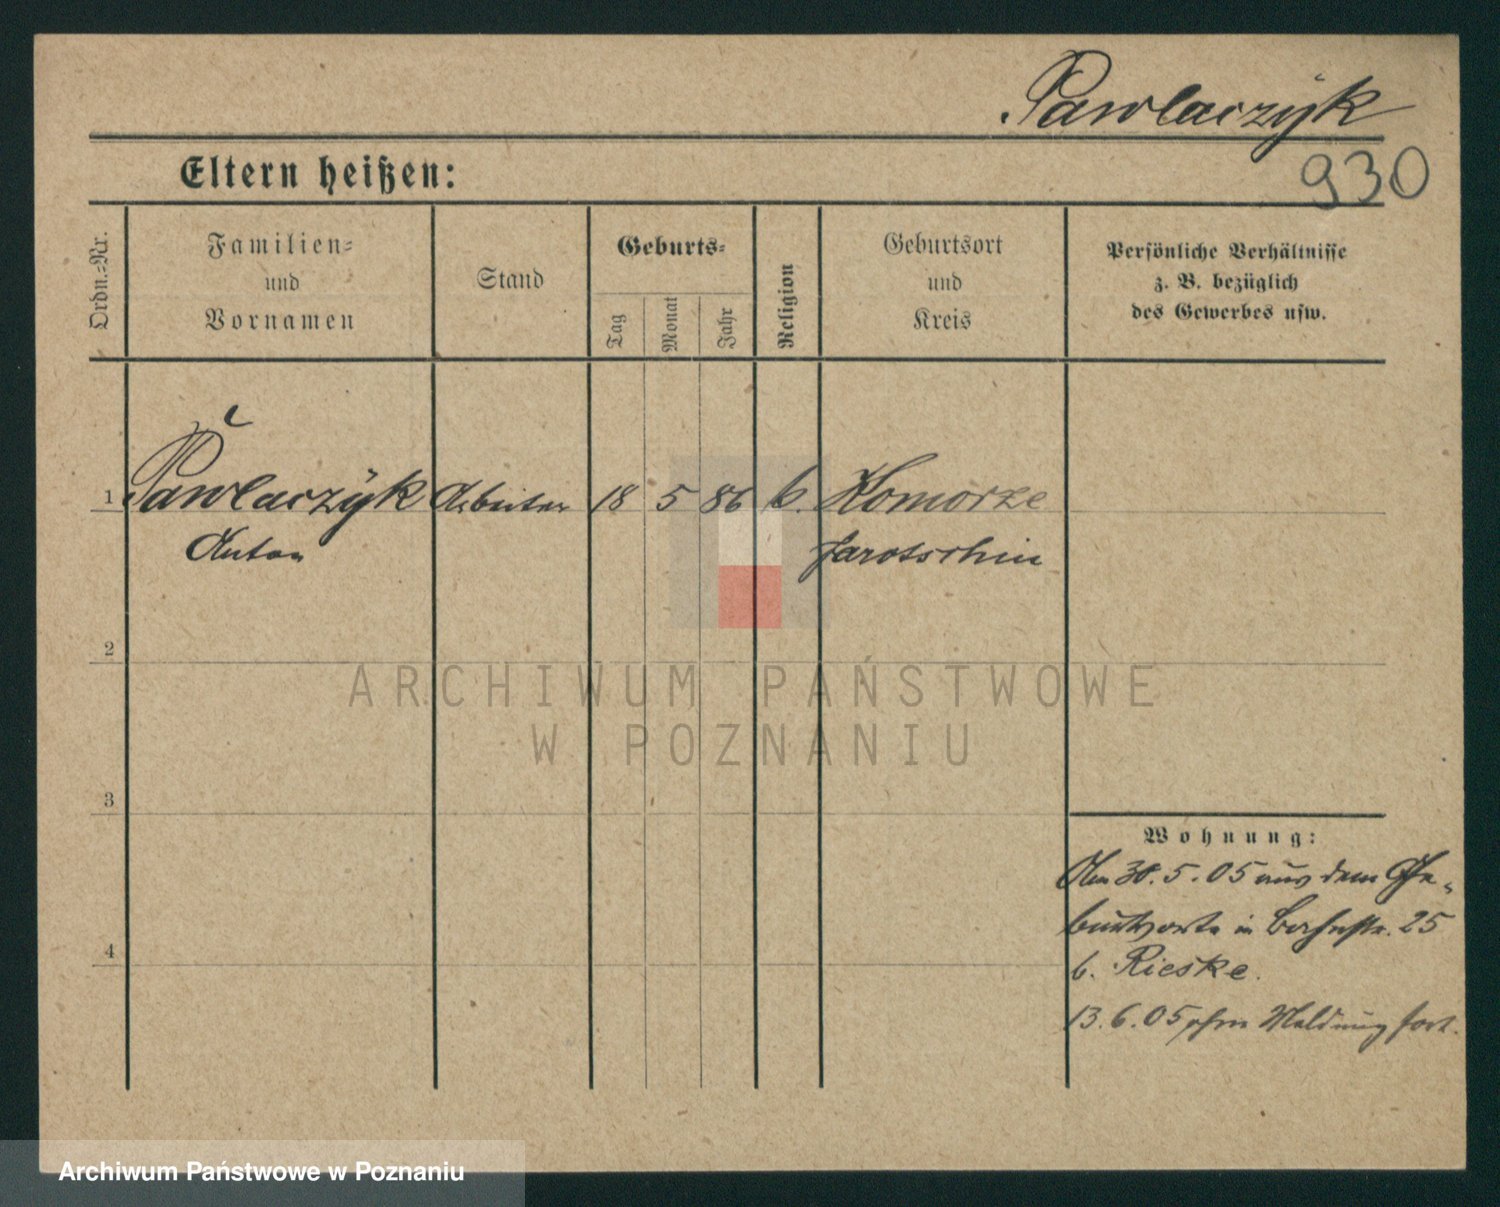 Pawlaczÿk
930
Eltern heißen:
Ordn.=Nr.
Familien=
und
Vornamen
Stand
Geburts=
Tag
Monat
Jahr
Religion
Geburtsort
und
Kreis
Persönliche Verhältnisse
z. B. bezüglich
des Gewerbes usw.
1 Pawlaczÿk Arbeiter 18 5 86 k. Komorze
Anton Jarotschin
2
ARCHIWUM PAŃSTWOWE
W POZNANIU
3
Wohnung:
Am 30. 5. 05 aus dem Ge-
burtsorte in Bahnstr. 25
b. Rieske.
4
13. 6. 05 ohne Meldung fort.
Archiwum Państwowe w Poznaniu